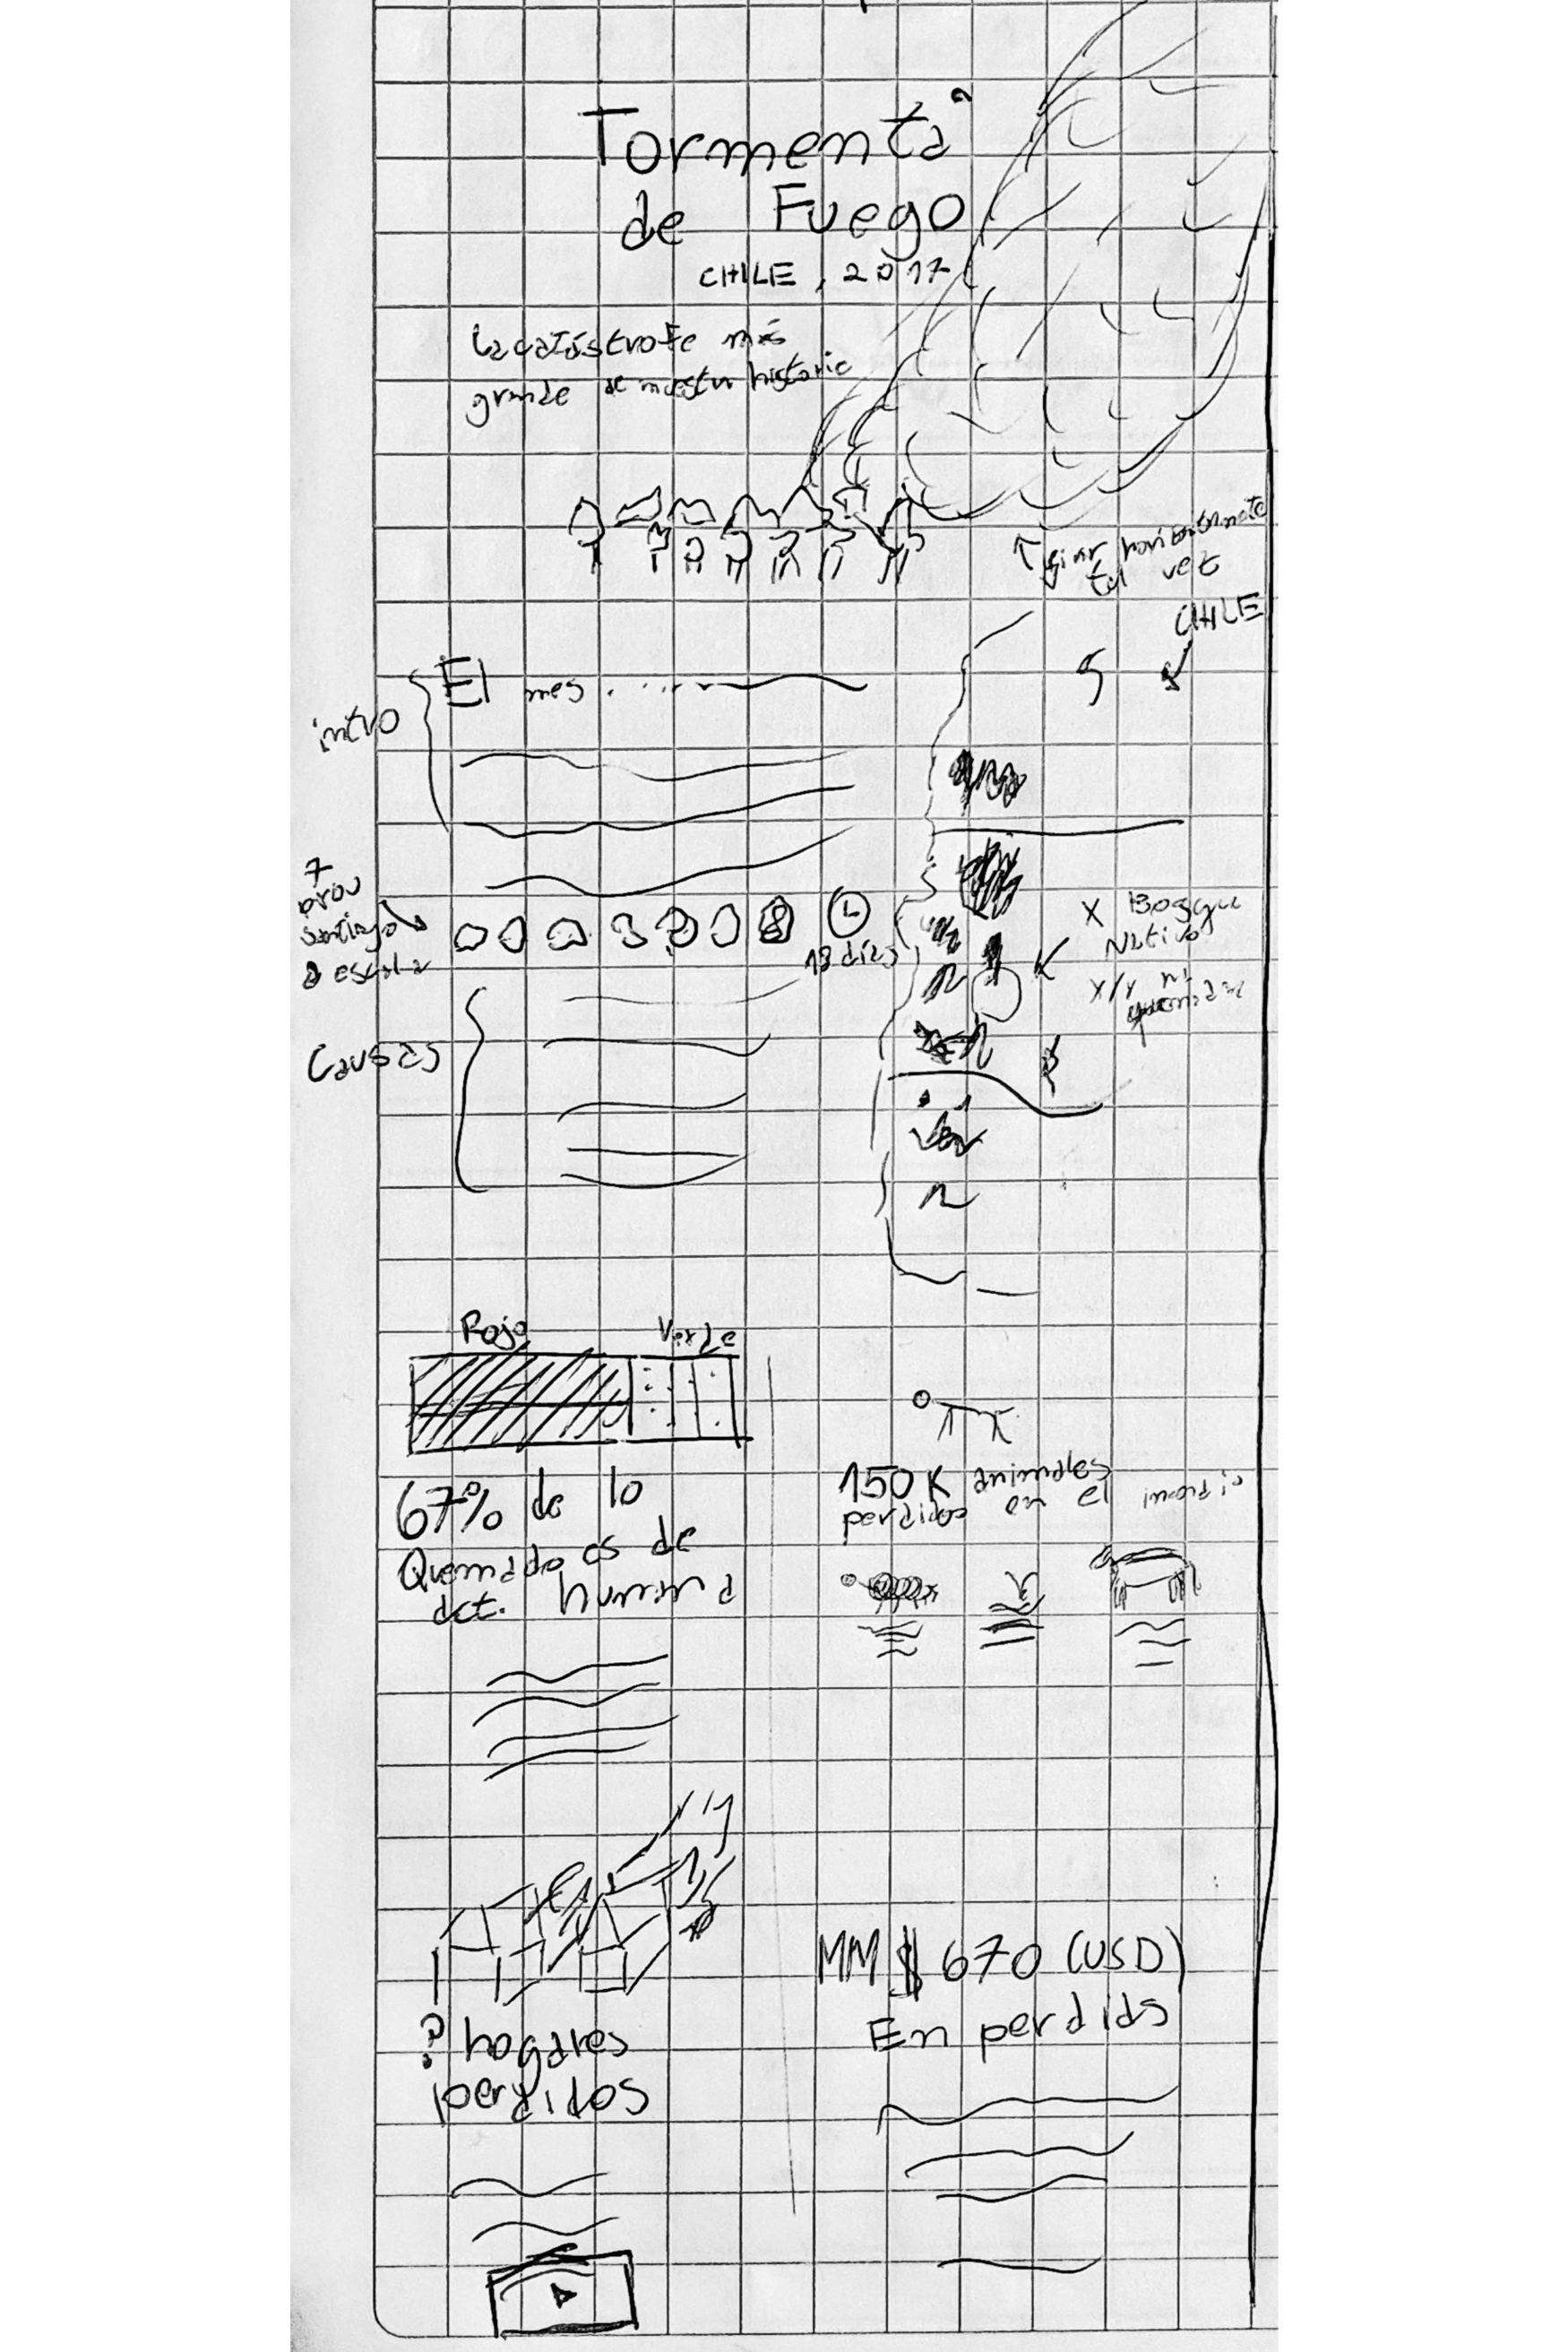 Tormenta
de Fuego
CHILE, 2017
La catástrofe más
grande de nuestra historia
↑ girar horizontalmente
tal vez
CHILE
intro
El mes . . . . . .
7
prov
Santiago
a escala
18 días
X Bosque
Nativo
X/Y
Causas
Rojo
Verde
67% de lo
Quemado es de
act. humana
150K animales
perdidos en el incendio
? hogares
perdidos
MM $ 670 (USD)
En perdids